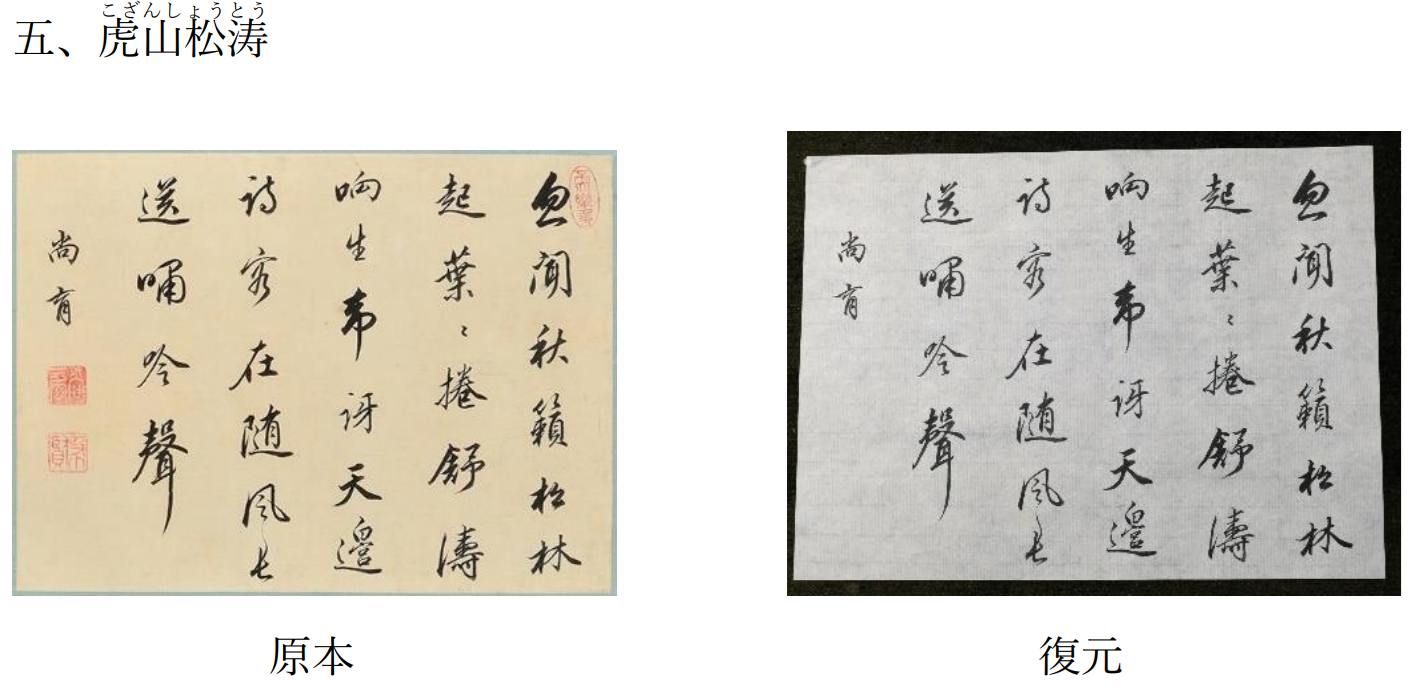 五、虎山松涛
こざんしょうとう
忽闻秋籟松林
起葉〻捲舒濤
响生 訝天邉
詩客在随風長
送嘯吟聲
尚育
忽闻秋籟松林
起葉〻捲舒濤
响生 訝天邉
詩客在随風長
送嘯吟聲
尚育
原本
復元